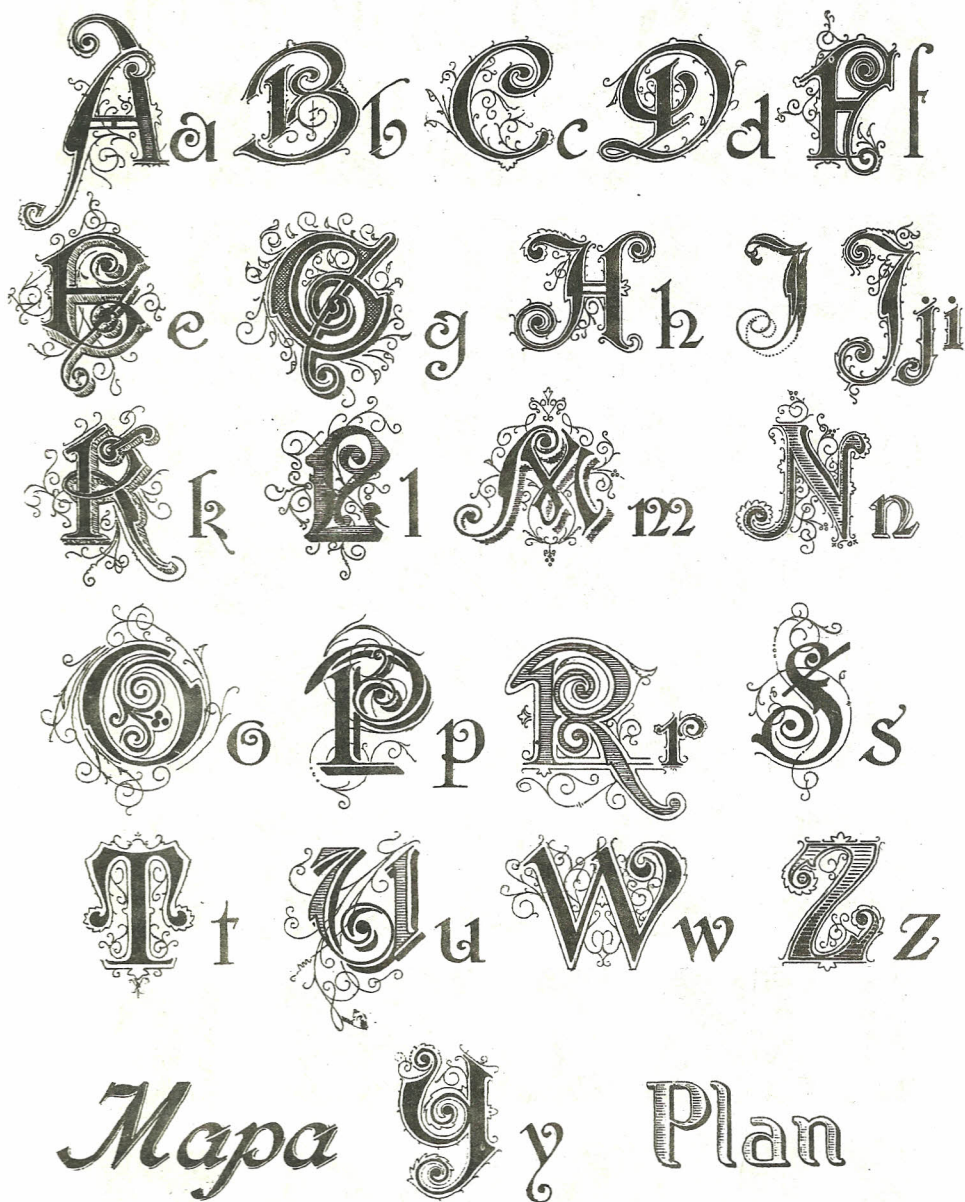 A a B b C c D d F f
E e G g H h I J j i
K k L l M m N n
O o P p R r S s
T t U u W w Z z
Mapa Y y Plan